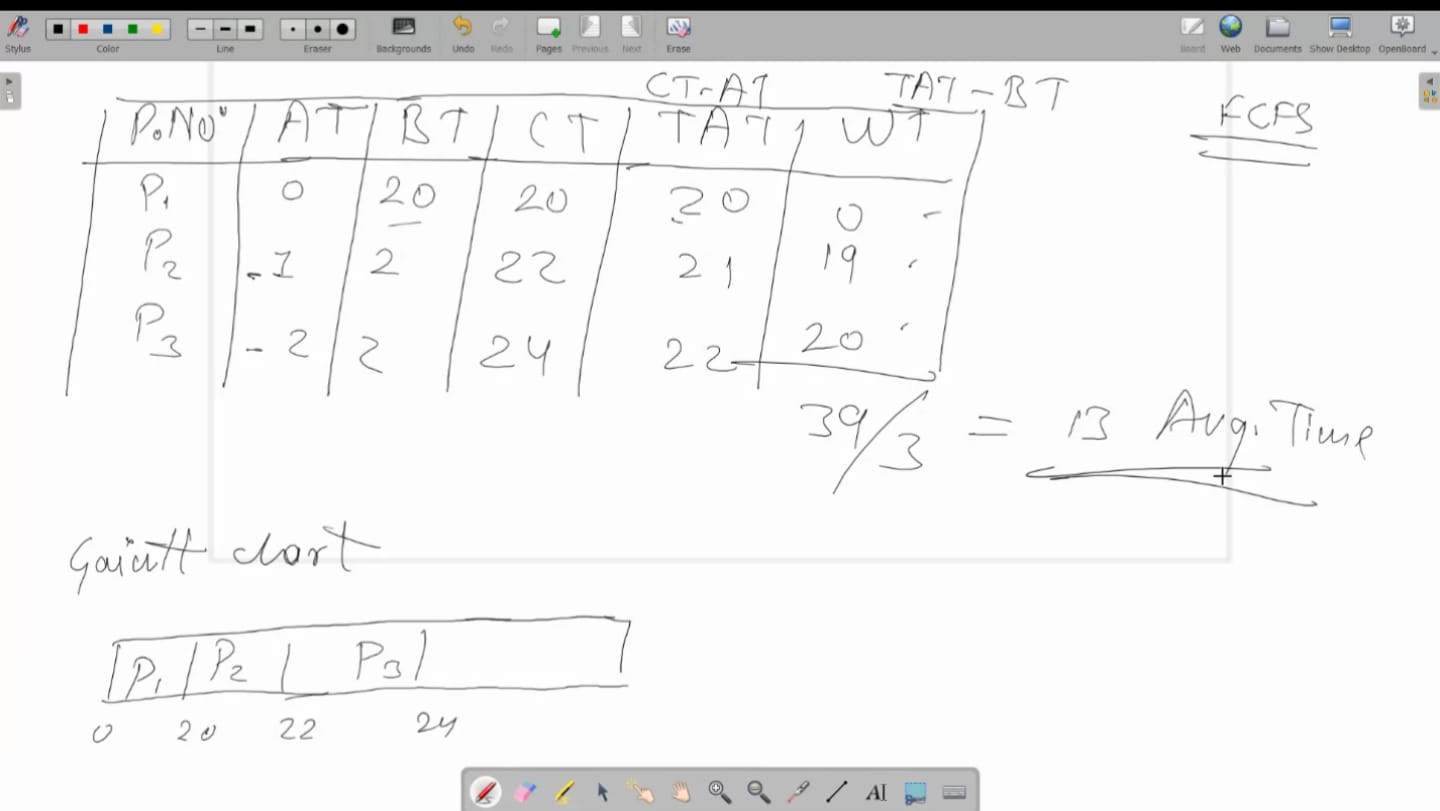 Stylus Color Line Eraser Backgrounds Undo Redo Pages Previous Next Erase Board Web Documents Show Desktop OpenBoard
CT-AT TAT-BT
P.No AT BT CT TAT WT FCFS
P1 0 20 20 20 0
P2 1 2 22 21 19
P3 2 2 24 22 20
39/3 = 13 Avg. Time
chart
P1 P2 P3
0 20 22 24
AI